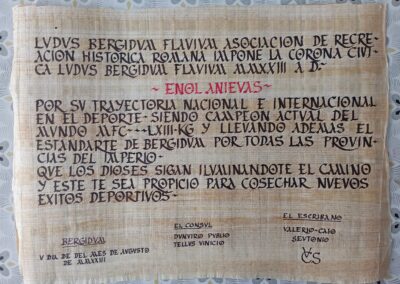 LVDVS BERGIDVM FLAVIVM ASOCIACION DE RECRE-
ACION HISTORICA ROMANA IMPONE LA CORONA CIVI-
CA LVDVS BERGIDVM FLAVIVM MMXXIII A D.-
-ENOL ANIEVAS-
POR SV TRAYECTORIA NACIONAL E INTERNACIONAL
EN EL DEPORTE- SIENDO CAMPEON ACTVAL DEL
MVNDO MFC---LXIII-KG Y LLEVANDO ADEMAS EL
ESTANDARTE DE BERGIDVM POR TODAS LAS PROVIN-
CIAS DEL IMPERIO-
QVE LOS DIOSES SIGAN ILVMINANDOTE EL CAMINO
Y ESTE TE SEA PROPICIO PARA COSECHAR NVEVOS
EXITOS DEPORTIVOS-
BERGIDVM
V DIA DE DEL MES DE AVGVSTO
DE MMXXIII
EL CONSVL
DVNVIRO PVBLIO
TELLVS VINICIO
EL ESCRIBANO
VALERIO-CAIO
SEVTONIO